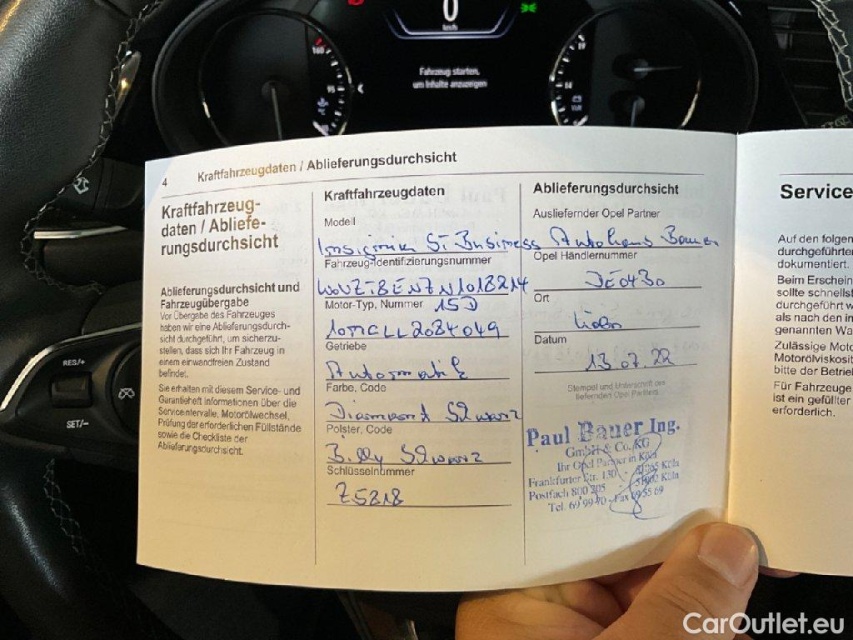 0
km/h
Fahrzeug starten,
um Inhalte anzuzeigen
RES/+
SET/-
4 Kraftfahrzeugdaten / Ablieferungsdurchsicht
Kraftfahrzeug-
daten / Abliefe-
rungsdurchsicht
Ablieferungsdurchsicht und
Fahrzeugübergabe
Vor Übergabe des Fahrzeuges
haben wir eine Ablieferungsdurch-
sicht durchgeführt, um sicherzu-
stellen, dass sich Ihr Fahrzeug in
einem einwandfreien Zustand
befindet.
Sie erhalten mit diesem Service- und
Garantieheft Informationen über die
Serviceintervalle, Motorölwechsel,
Prüfung der erforderlichen Füllstände
sowie die Checkliste der
Ablieferungsdurchsicht.
Kraftfahrzeugdaten
Modell
Insignia ST Business
Fahrzeug-Identifizierungsnummer
W0VZT8ENZN1018214
Motor-Typ, Nummer 15D
Getriebe
Automatik
Farbe, Code
Diamant Schwarz
Polster, Code
Billy Schwarz
Schlüsselnummer
Z5218
Ablieferungsdurchsicht
Ausliefernder Opel Partner
Autohaus Bauer
Opel Händlernummer
DE0430
Ort
Köln
Datum
13.07.22
Stempel und Unterschrift des
liefernden Opel Partners
Paul Bauer Ing.
GmbH & Co. KG
Ihr Opel Partner in Köln
Frankfurter Str. 130 - Köln
Postfach 800 205 Köln
Tel. 69 99 - Fax 69 55 69
Service
Auf den folgen
durchgeführten
dokumentiert.
Beim Erschein
sollte schnells
durchgeführt w
als nach den in
genannten Wa
Zulässige Moto
Motorölviskosit
bitte der Betrie
Für Fahrzeuge
ist ein gefüllter
erforderlich.
CarOutlet.eu